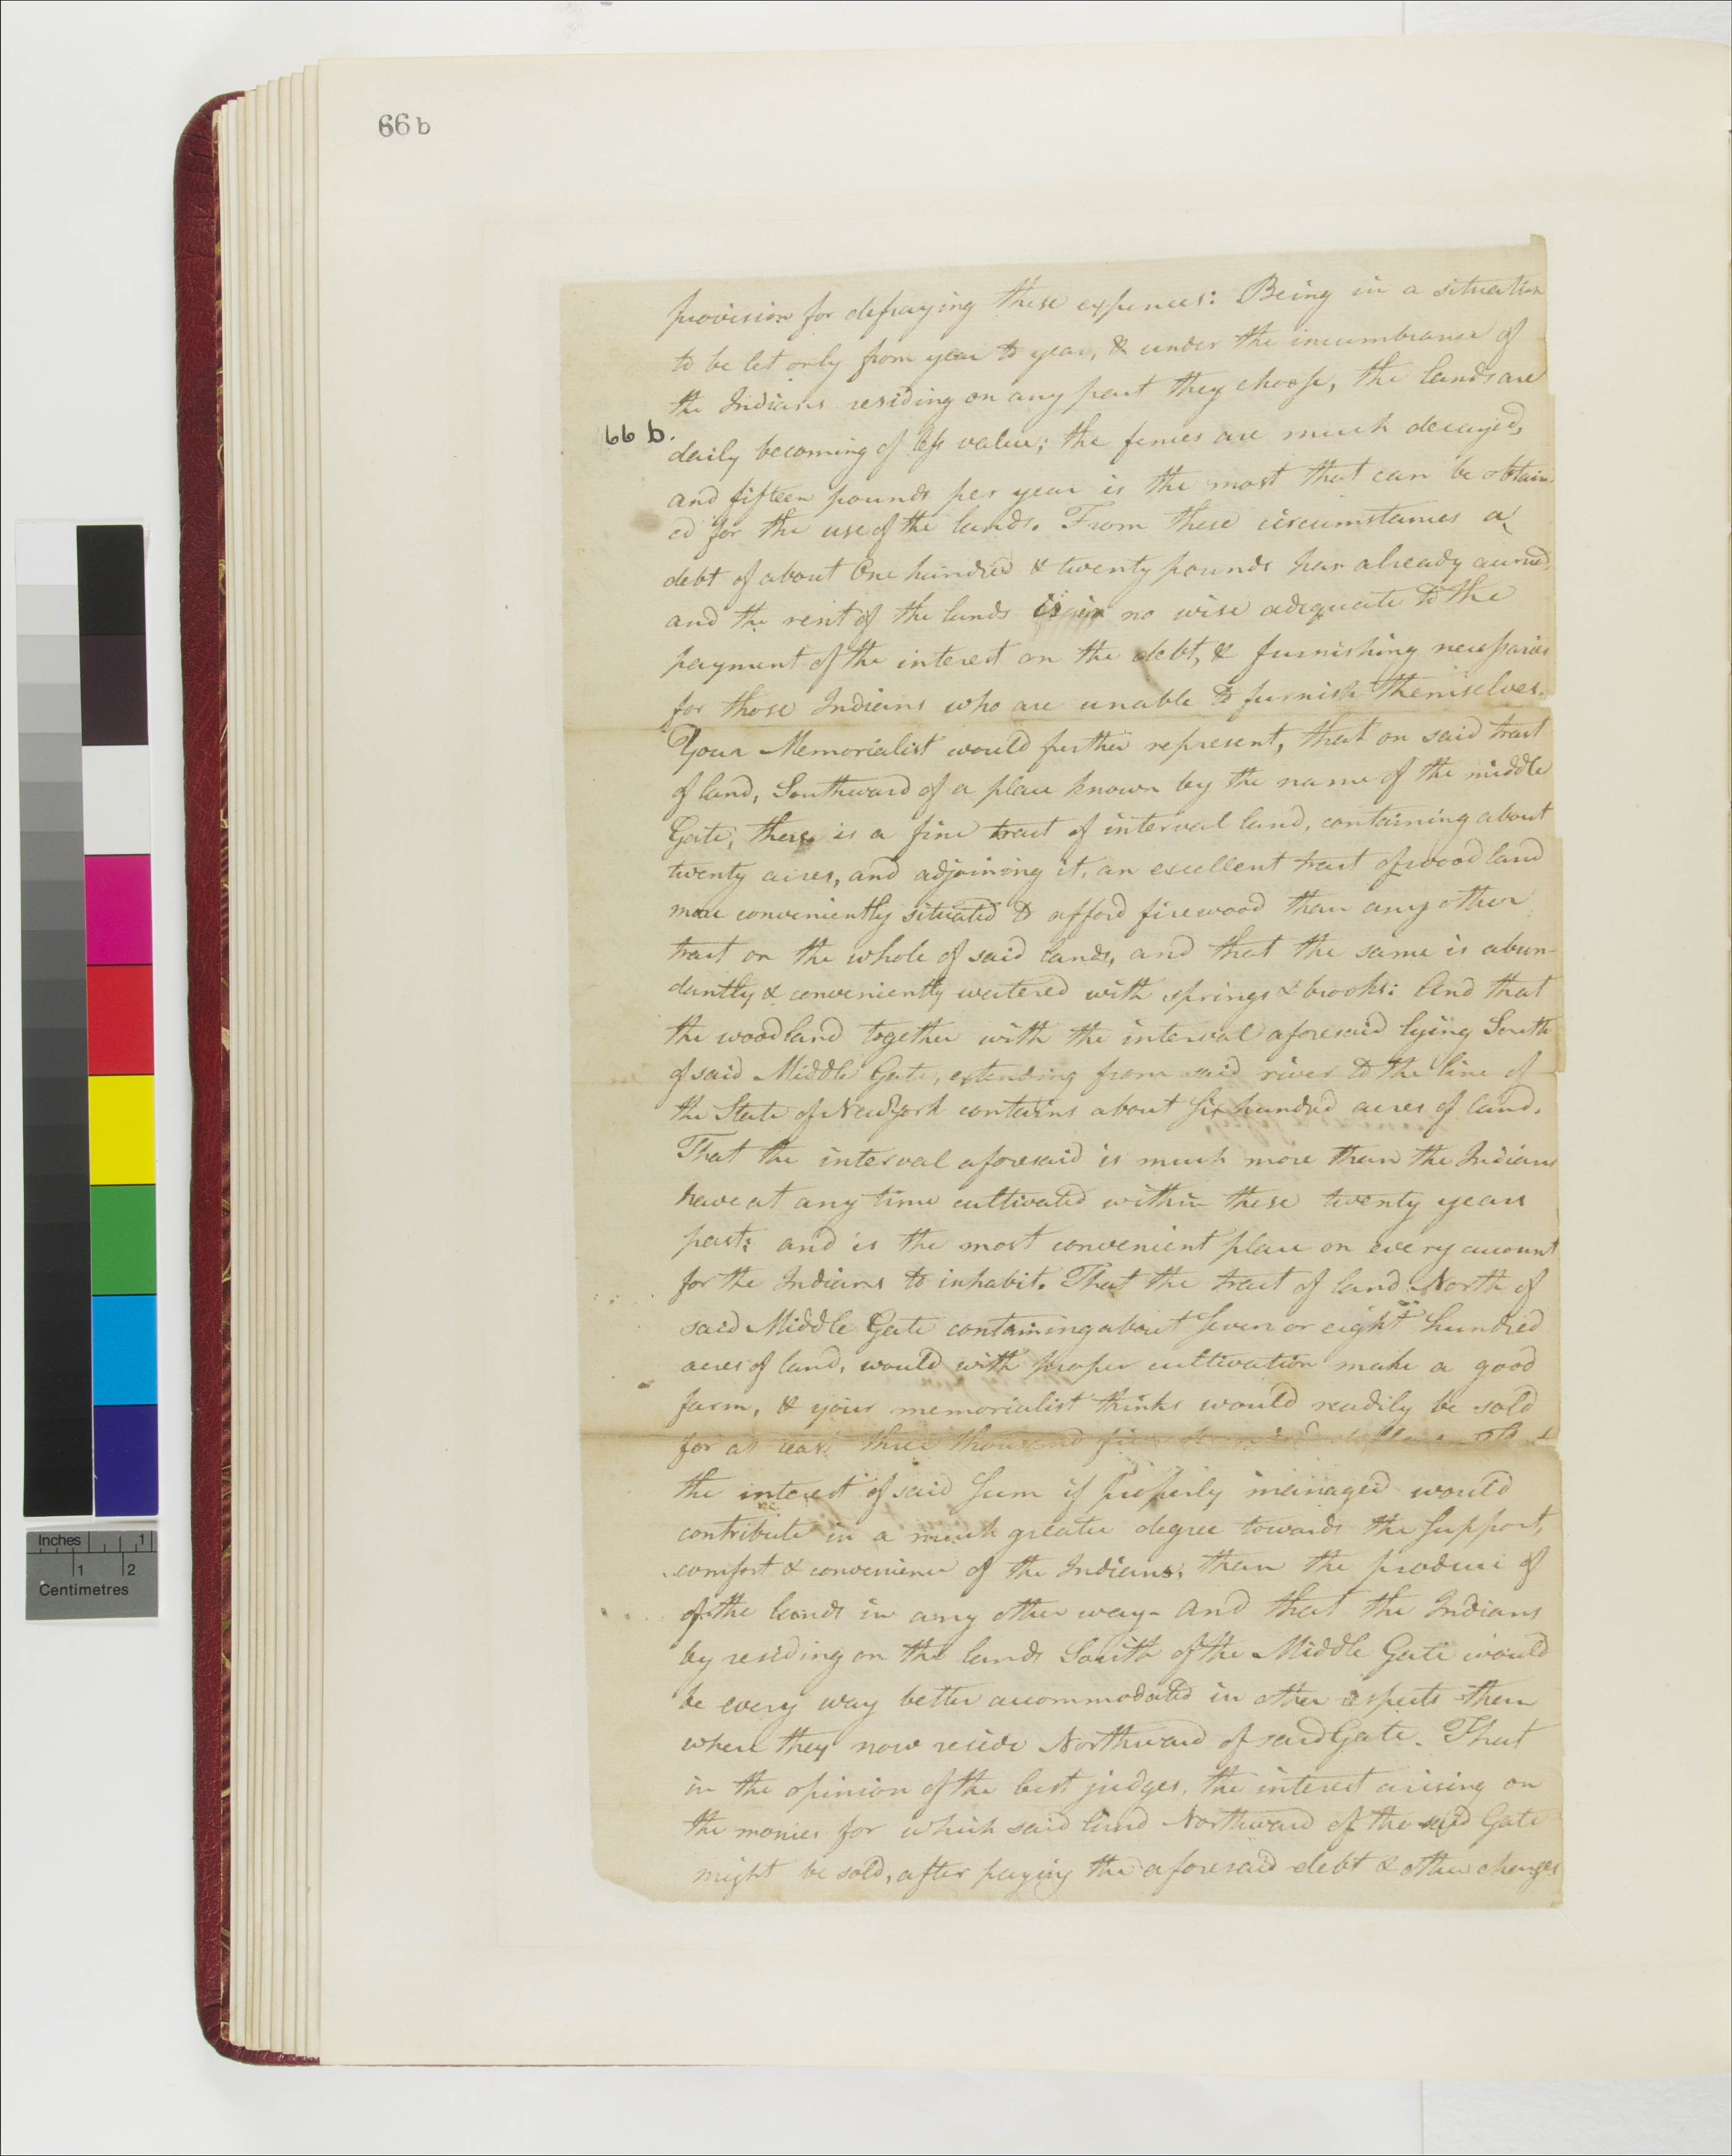 66 b
provision for defraying these expences: Being in a situation
to be let only from year to year, & under the incumbrance of
the Indians residing on any part they choose, the lands are
66 b.
daily becoming of less value; the fences are much decayed,
and fifteen pounds per year is the most that can be obtain
ed for the use of the lands. From these circumstances a
debt of about One hundred & twenty pounds has already accrued,
and the rent of the lands is in no wise adequate to the
payment of the interest on the debt, & furnishing necessaries
for those Indians who are unable to furnish themselves.
Your Memorialist would further represent, that on said tract
of land, Southward of a place known by the name of the middle
Gate, there is a fine tract of interval land, containing about
twenty acres, and adjoining it, an excellent tract of wood land
more conveniently situated to afford firewood than any other
tract on the whole of said lands, and that the same is abun-
dantly & conveniently watered with springs & brooks: And that
the wood land together with the interval aforesaid lying South
of said Middle Gate, extending from said river to the line of
the State of New York contains about six hundred acres of land.
That the interval aforesaid is much more than the Indians
have at any time cultivated within these twenty years
past: and is the most convenient place on every account
for the Indians to inhabit. That the tract of land North of
said Middle Gate containing about seven or eight hundred
acres of land, would with proper cultivation make a good
farm, & your memorialist thinks would readily be sold
for at least three thousand five hundred dollars
the interest of said sum if properly managed would
contribute in a much greater degree towards the support,
comfort & convenience of the Indians, than the produce of
of the lands in any other way - and that the Indians
by residing on the lands South of the Middle Gate would
be every way better accommodated in other respects than
where they now reside Northward of said Gate. That
in the opinion of the best judges, the interest arising on
the monies for which said land Northward of the said Gate
might be sold, after paying the aforesaid debt & other charges
Inches 1
1 2
Centimetres